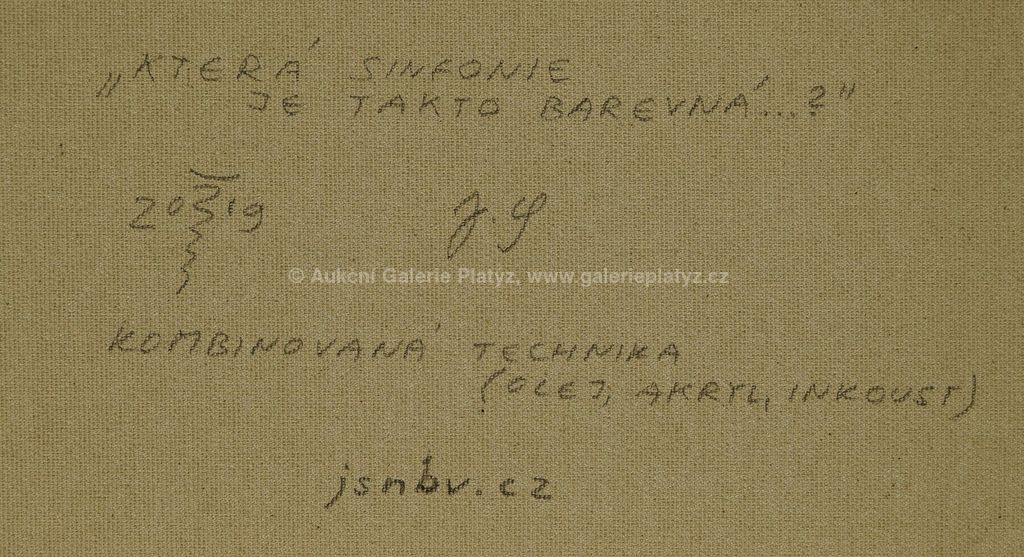 „KTERÁ SINFONIE
JE TAKTO BAREVNÁ...?"
2019
© Aukční Galerie Platýz, www.galerieplatyz.cz
KOMBINOVANÁ TECHNIKA
(OLEJ, AKRYL, INKOUST)
jsnbv.cz